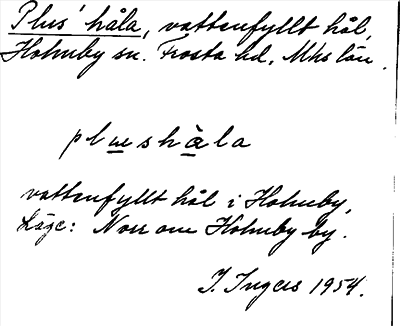 Plus' håla, vattenfyllt hål,
Holmby sn. Frosta hd, Mhs län.
plushàla
vattenfyllt hål i Holmby,
Läge: Norr om Holmby by.
I. Ingers 1954.